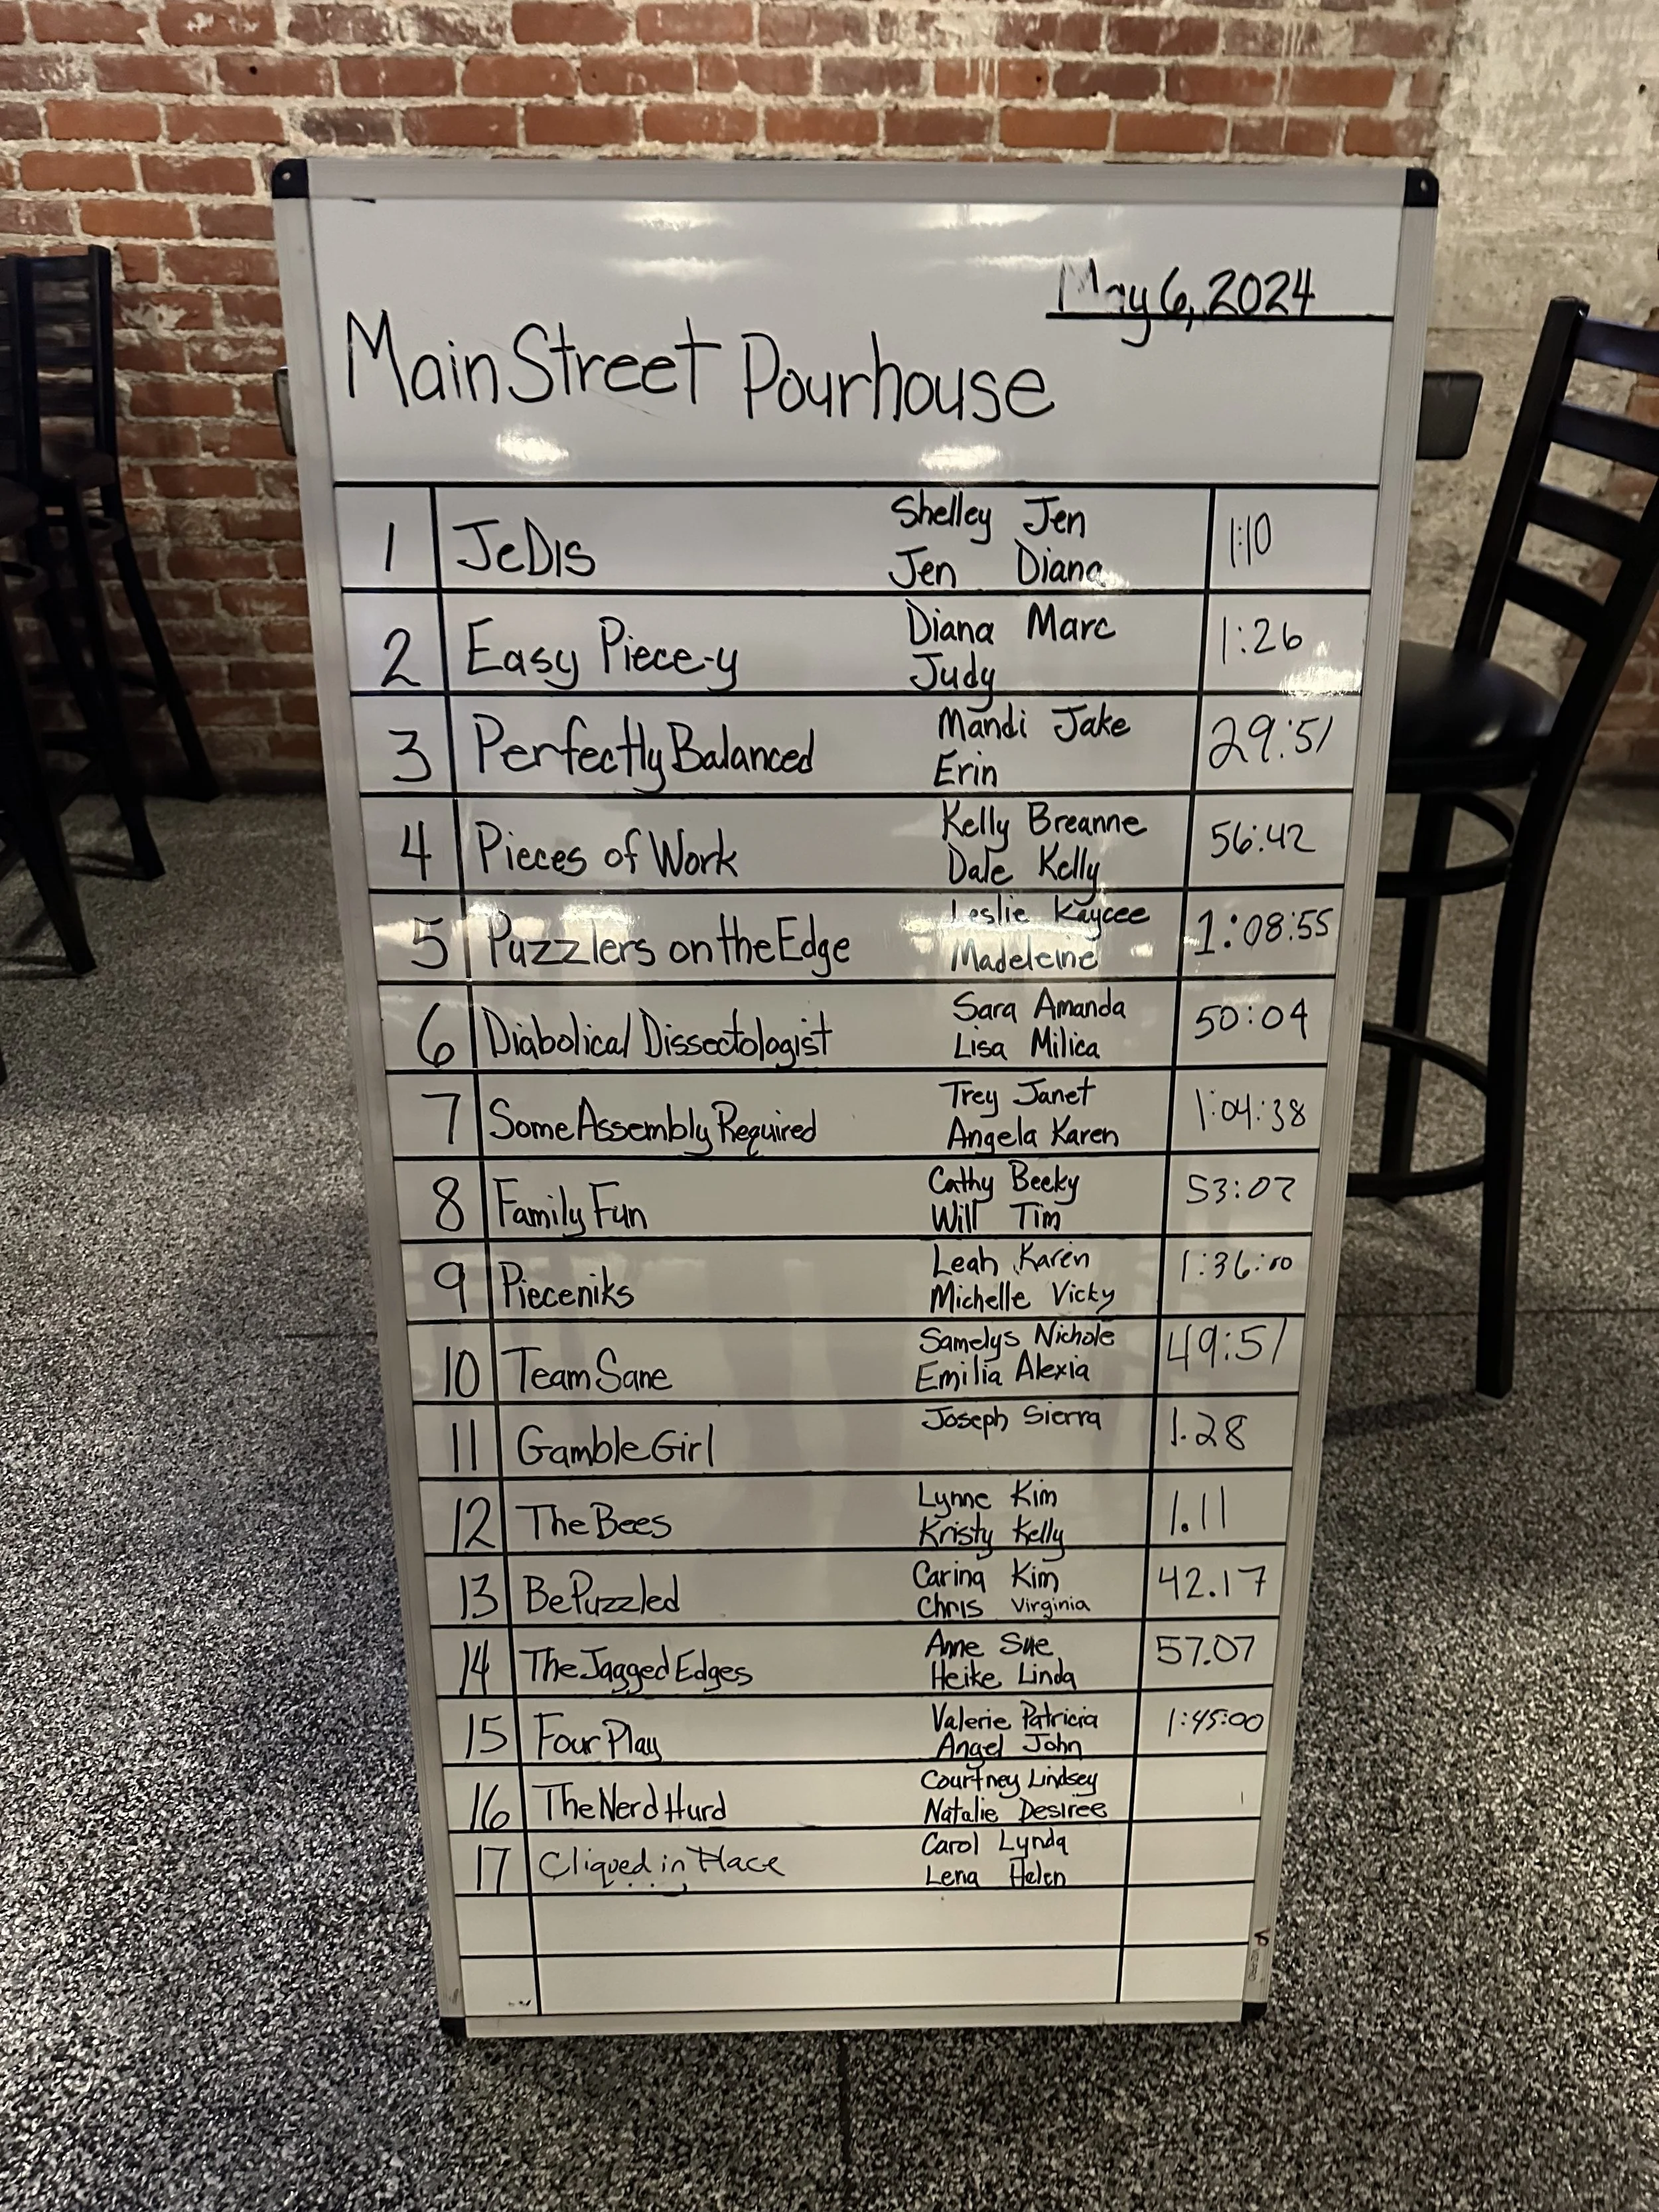 May 6, 2024
Main Street Pourhouse
1 JeDIS Shelley Jen 1:10
Jen Diana
2 Easy Piece-y Diana Marc 1:26
Judy
3 Perfectly Balanced Mandi Jake 29:51
Erin
4 Pieces of Work Kelly Breanne 56:42
Dale Kelly
5 Puzzlers on the Edge Leslie Kaycee 1:08:55
Madeleine
6 Diabolical Dissectologist Sara Amanda 50:04
Lisa Milica
7 Some Assembly Required Trey Janet 1:04:38
Angela Karen
8 Family Fun Cathy Becky 53:02
Will Tim
9 Pieceniks Leah Karen 1:36:10
Michelle Vicky
10 Team Sane Samelys Nichole 49:51
Emilia Alexia
11 Gamble Girl Joseph Sierra 1.28
12 The Bees Lynne Kim 1.11
Kristy Kelly
13 Be Puzzled Carina Kim 42.17
Chris Virginia
14 The Jagged Edges Anne Sue 57.07
Heike Linda
15 Four Play Valerie Patricia 1:45:00
Angel John
16 The Nerd Hurd Courtney Lindsey
Natalie Desiree
17 Cliqued in Place Carol Lynda
Lena Helen